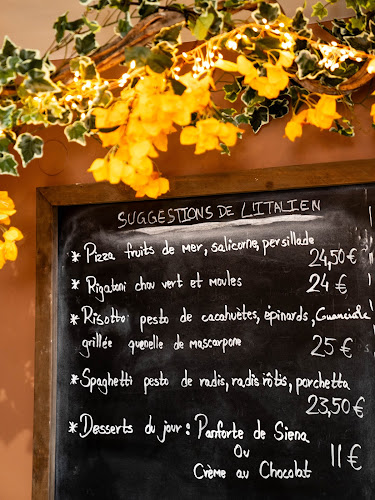 SUGGESTIONS DE L'ITALIEN
* Pizza fruits de mer, salicorne, persillade
24,50€
* Rigatoni chou vert et moules
24 €
* Risotto: pesto de cacahuètes, épinards, Guanciale
grillée quenelle de mascarpone
25 €
* Spaghetti pesto de radis, radis rôtis, porchetta
23,50€
* Desserts du jour : Panforte de Siena
Ou
11 €
Crème au Chocolat